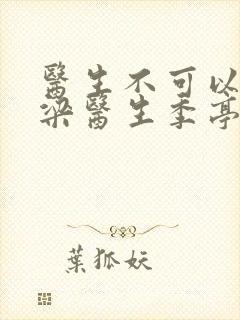 醫生不可以
梁醫生季亭
葉狐妖